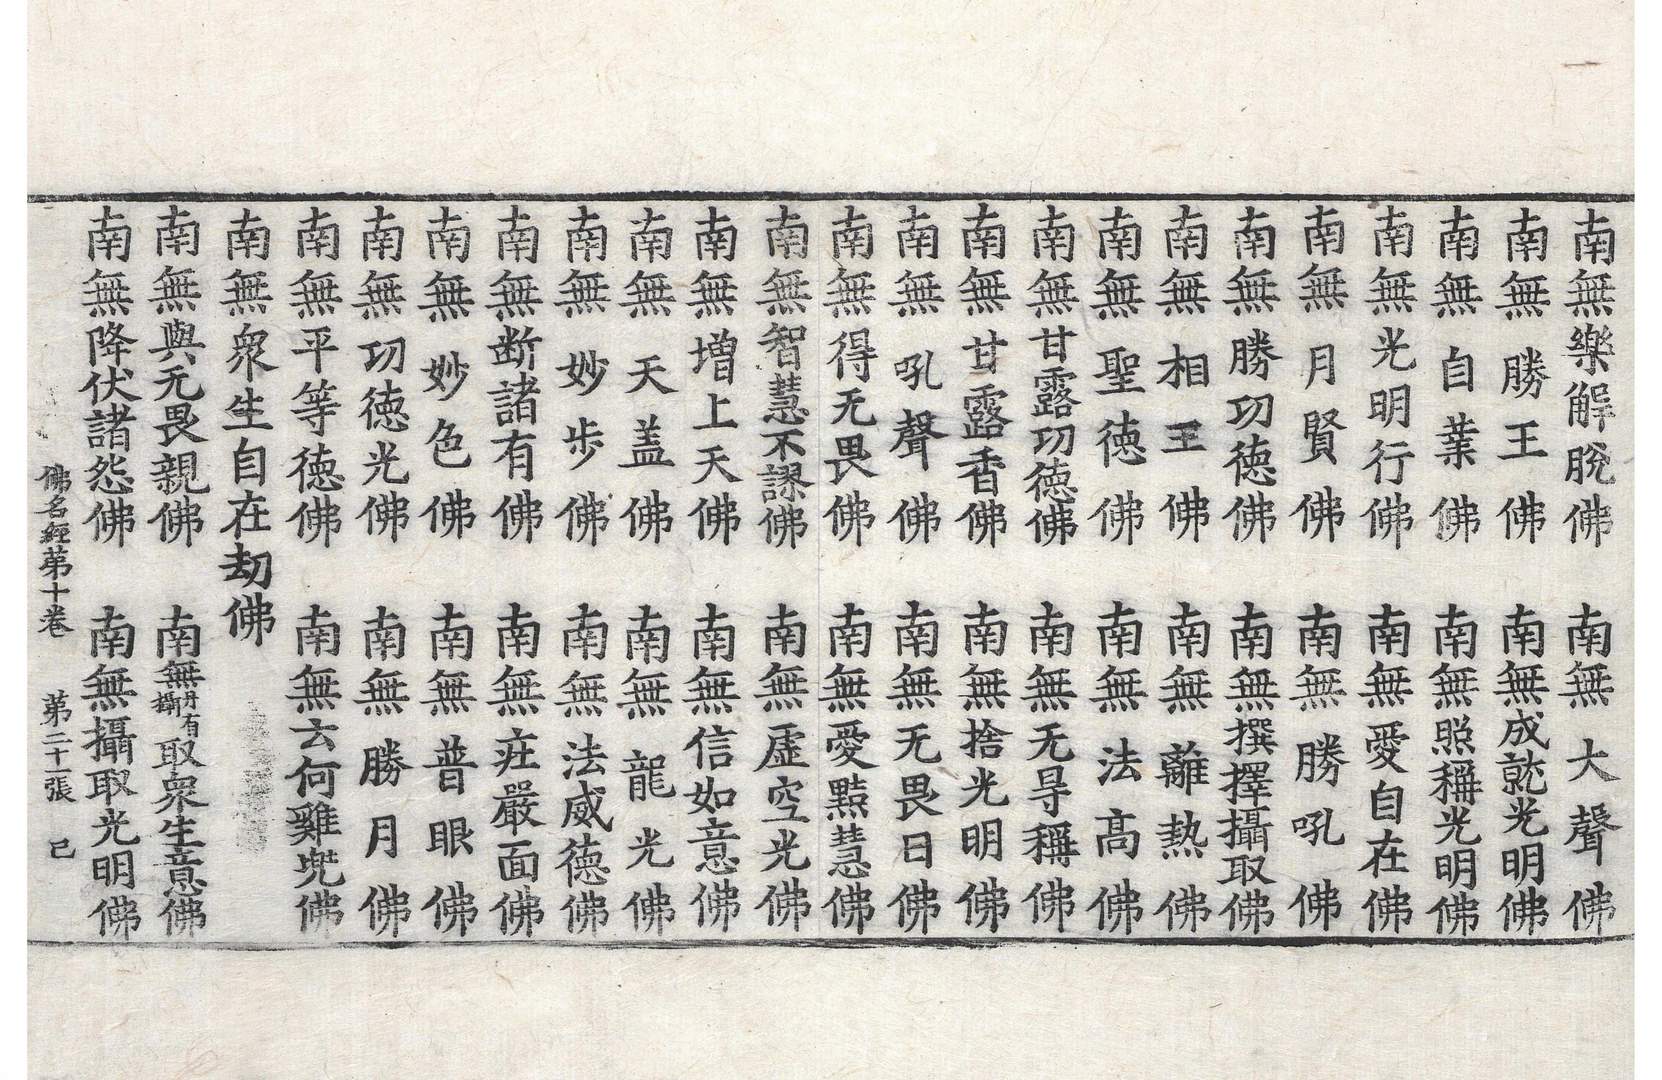 南無樂解脫佛 南無大聲佛
南無勝王佛 南無成就光明佛
南無自業佛 南無照稱光明佛
南無光明行佛 南無愛自在佛
南無月賢佛 南無勝吼佛
南無勝功德佛 南無撰擇攝取佛
南無相王佛 南無離熱佛
南無聖德佛 南無法高佛
南無甘露功德佛 南無无㝵稱佛
南無甘露香佛 南無捨光明佛
南無吼聲佛 南無无畏日佛
南無得无畏佛 南無愛黠慧佛
南無智慧不謬佛 南無虛空光佛
南無增上天佛 南無信如意佛
南無天盖佛 南無龍光佛
南無妙步佛 南無法威德佛
南無断諸有佛 南無庄嚴面佛
南無妙色佛 南無普眼佛
南無功德光佛 南無勝月佛
南無平等德佛 南無去何難兠佛
南無衆生自在劫佛
南無與无畏親佛 南無丹有攝取衆生意佛
南無降伏諸怨佛 南無攝取光明佛
佛名經苐十卷 苐二十一張 己